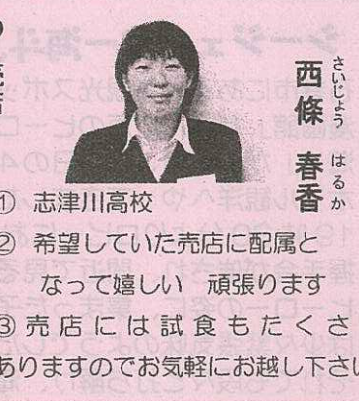 西條 春香
さいじょう はるか
① 志津川高校
② 希望していた売店に配属と
なって嬉しい 頑張ります
③ 売店には試食もたくさ
ありますのでお気軽にお越し下さい